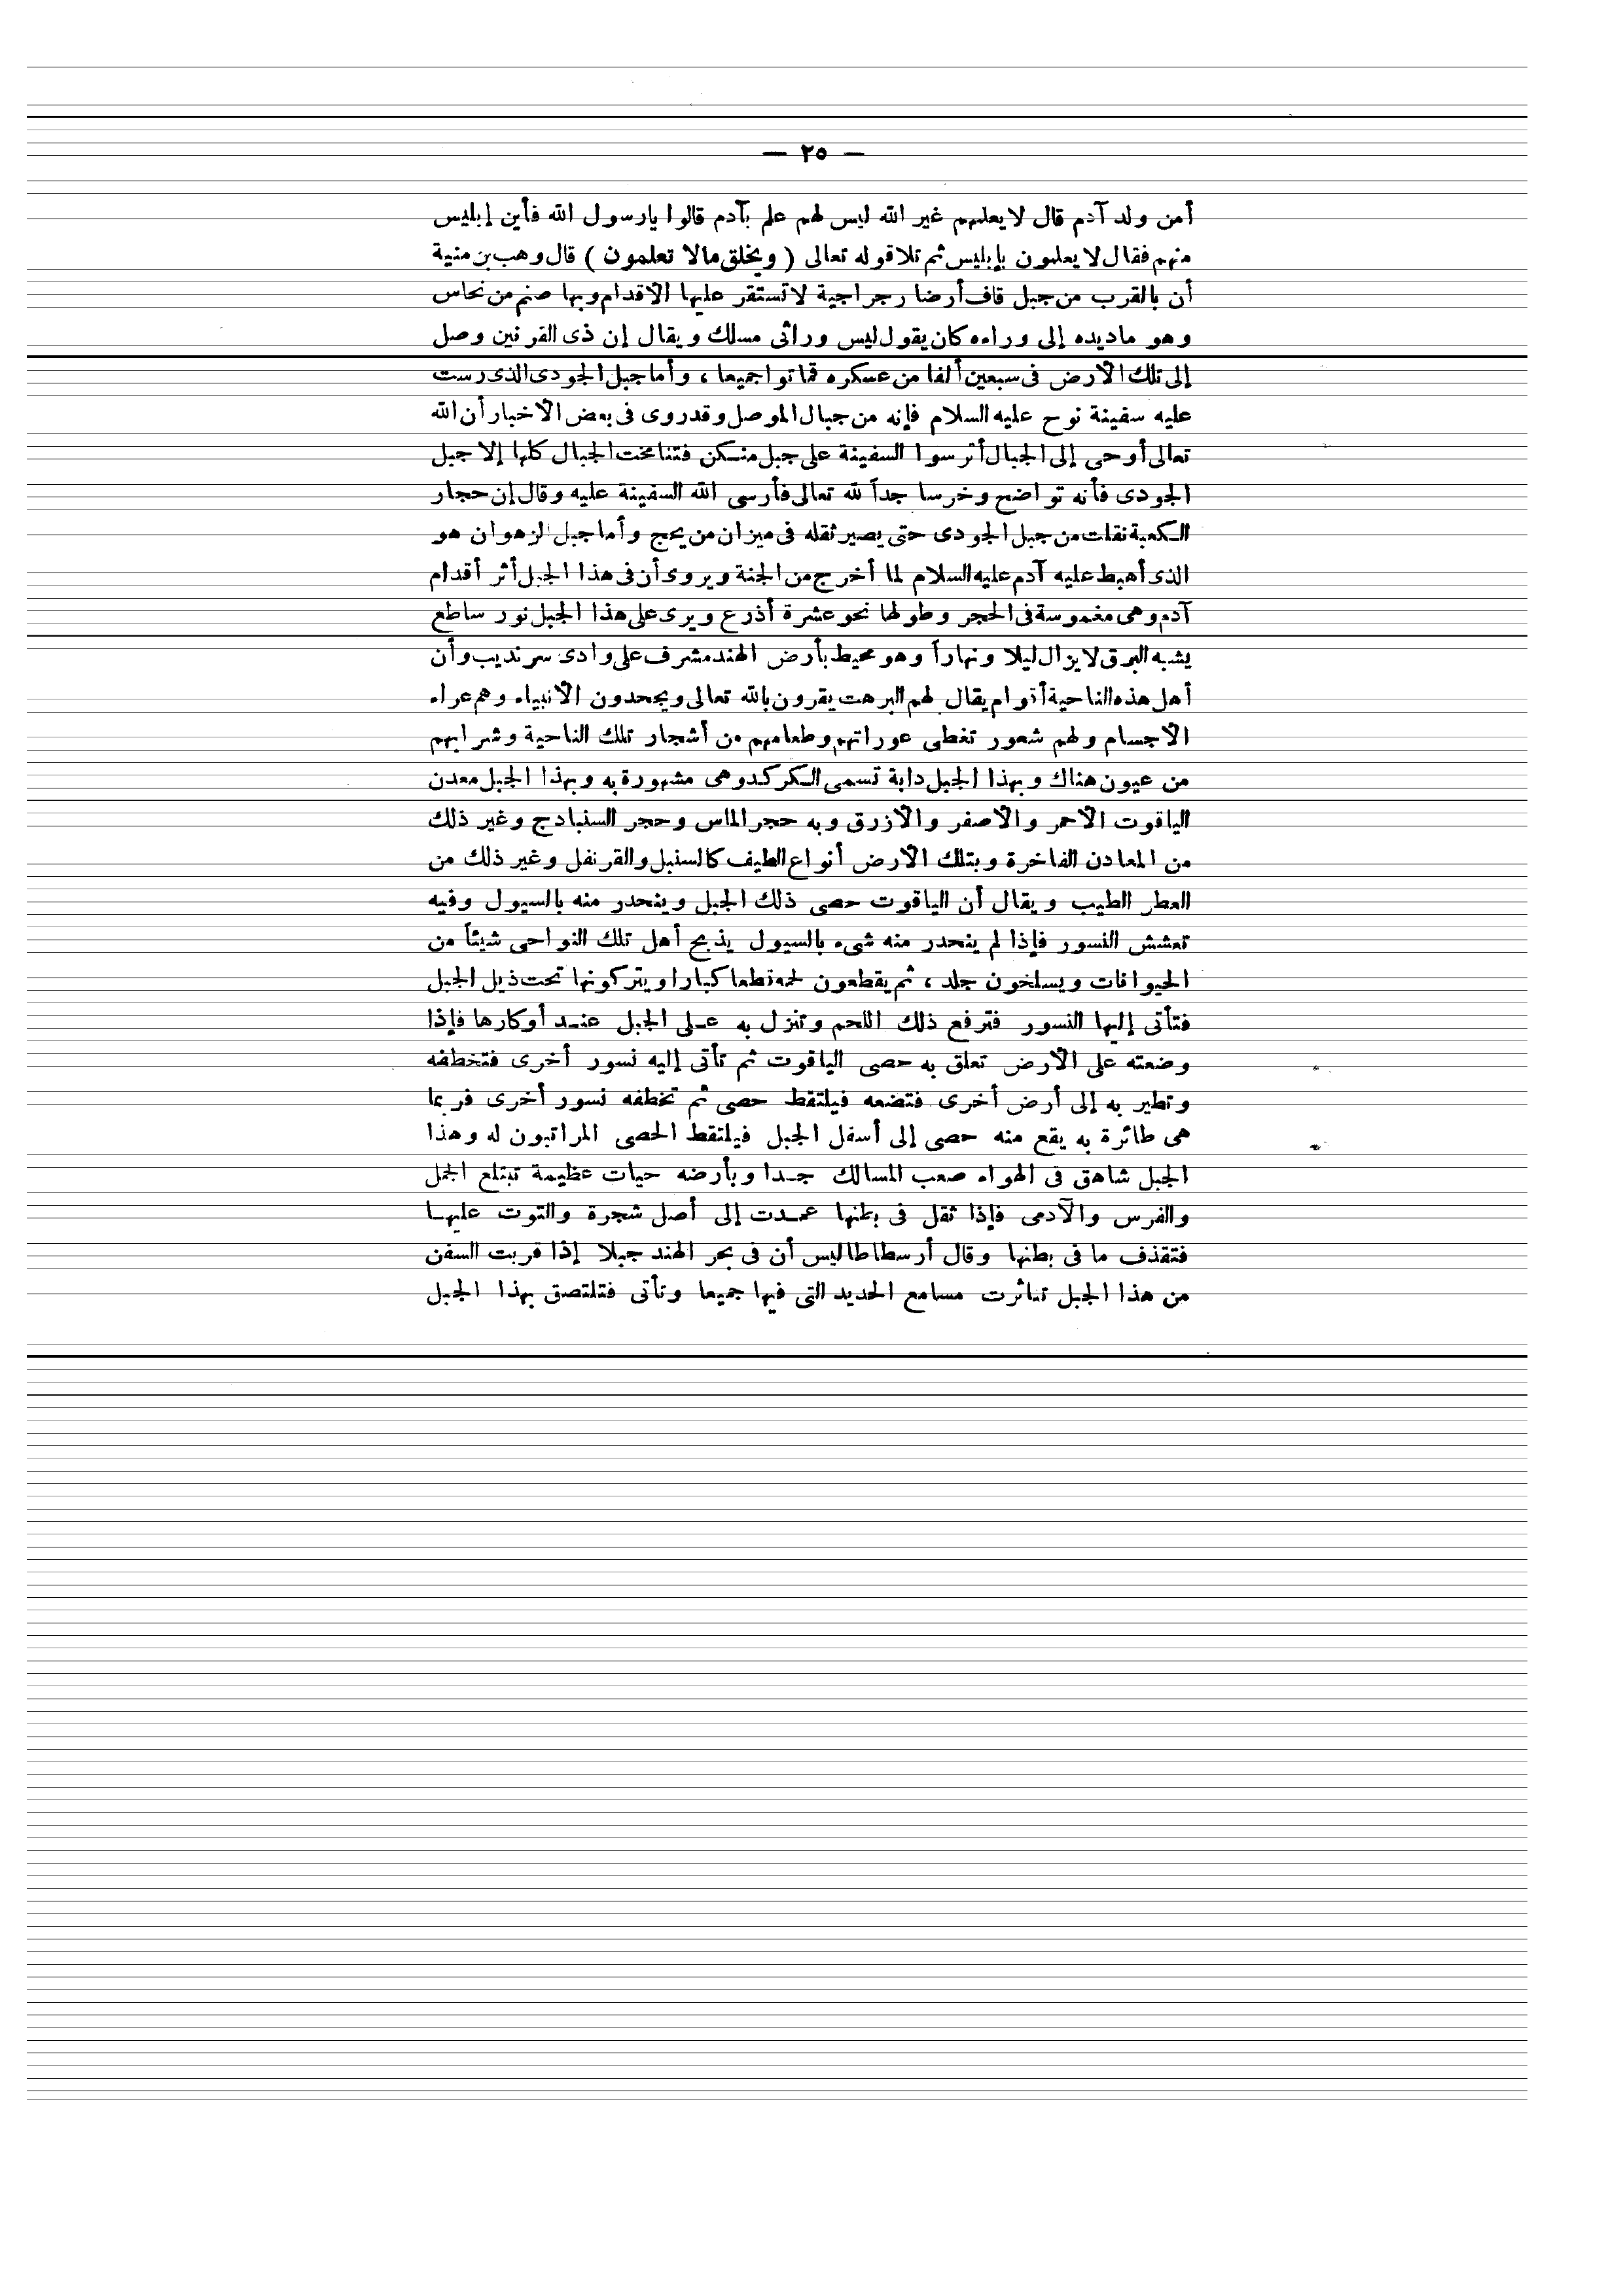 — ٢٥ —
أمن ولد آدم قال لا يعلمهم غير الله ليس لهم علم بآدم قالوا يارسول الله فأين إبليس
منهم فقال لا يعلمون بإبليس ثم تلا قوله تعالى ( ويخلق مالا تعلمون ) قال وهب بن منية
أن بالقرب من جبل قاف أرضا رجراجية لا تستقر عليها الاقدام وبها صنم من نحاس
وهو ماد يده إلى وراءه كان يقول ليس ورائى مسلك ويقال إن ذى القرنين وصل
إلى تلك الأرض فى سبعين ألفا من عسكره فماتوا جميعا ، وأما جبل الجودى الذى رست
عليه سفينة نوح عليه السلام فإنه من جبال الموصل وقد روى فى بعض الاخبار أن الله
تعالى أوحى إلى الجبال أترسوا السفينة على جبل منكن فتشامخت الجبال كلها إلا جبل
الجودى فأنه تواضح وخر ساجداً لله تعالى فأرسى الله السفينة عليه وقال إن حجار
الكعبة نقلت من جبل الجودى حتى يصير ثقله فى ميزان من يحج وأما جبل الزهوان هو
الذى أهبط عليه آدم عليه السلام لما أخرج من الجنة ويروى أن فى هذا الجبل أثر أقدام
آدم وهى مغموسة فى الحجر وطولها نحو عشرة أذرع ويرى على هذا الجبل نور ساطع
يشبه البرق لا يزال ليلا ونهاراً وهو محيط بأرض الهند مشرف على وادى سرنديب وأن
أهل هذه الناحية أقوام يقال لهم البرهت يقرون بالله تعالى ويجحدون الأنبياء وهم عراء
الاجسام ولهم شعور تغطى عوراتهم وطعامهم من أشجار تلك الناحية وشرابهم
من عيون هناك وبهذا الجبل دابة تسمى الكركدو هى مشهورة به وبهذا الجبل معدن
الياقوت الاحمر والاصفر والأزرق وبه حجر الماس وحجر السنبادج وغير ذلك
من المعادن الفاخرة وبتلك الأرض أنواع الطيف كالسنبل والقرنفل وغير ذلك من
العطر الطيب ويقال أن الياقوت حصى ذلك الجبل وينحدر منه بالسيول وفيه
تعشش النسور فإذا لم ينحدر منه شىء بالسيول يذبح أهل تلك النواحى شيئاً من
الحيوانات ويسلخون جلد ، ثم يقطعون لحمه قطعا كبارا ويتركونها تحت ذيل الجبل
فتأتى إليها النسور فترفع ذلك اللحم وتنزل به على الجبل عند أوكارها فإذا
وضعته على الأرض تعلق به حصى الياقوت ثم تأتى إليه نسور أخرى فتخطفه
وتطير به إلى أرض أخرى فتضعه فيلتقط حصى ثم تخطفه نسور أخرى فربما
هى طائرة به يقع منه حصى إلى أسفل الجبل فيلتقط الحصى المراقبون له وهذا
الجبل شاهق فى الهواء صعب المسالك جدا وبأرضه حيات عظيمة تبتلع الجمل
والفرس والآدمى فإذا ثقل فى بطنها عمدت إلى أصل شجرة والتوت عليها
فتقذف ما فى بطنها وقال أرسطاطاليس أن فى بحر الهند جبلا إذا قربت السفن
من هذا الجبل تناثرت مسامع الحديد التى فيها جميعا وتأتى فتلتصق بهذا الجبل